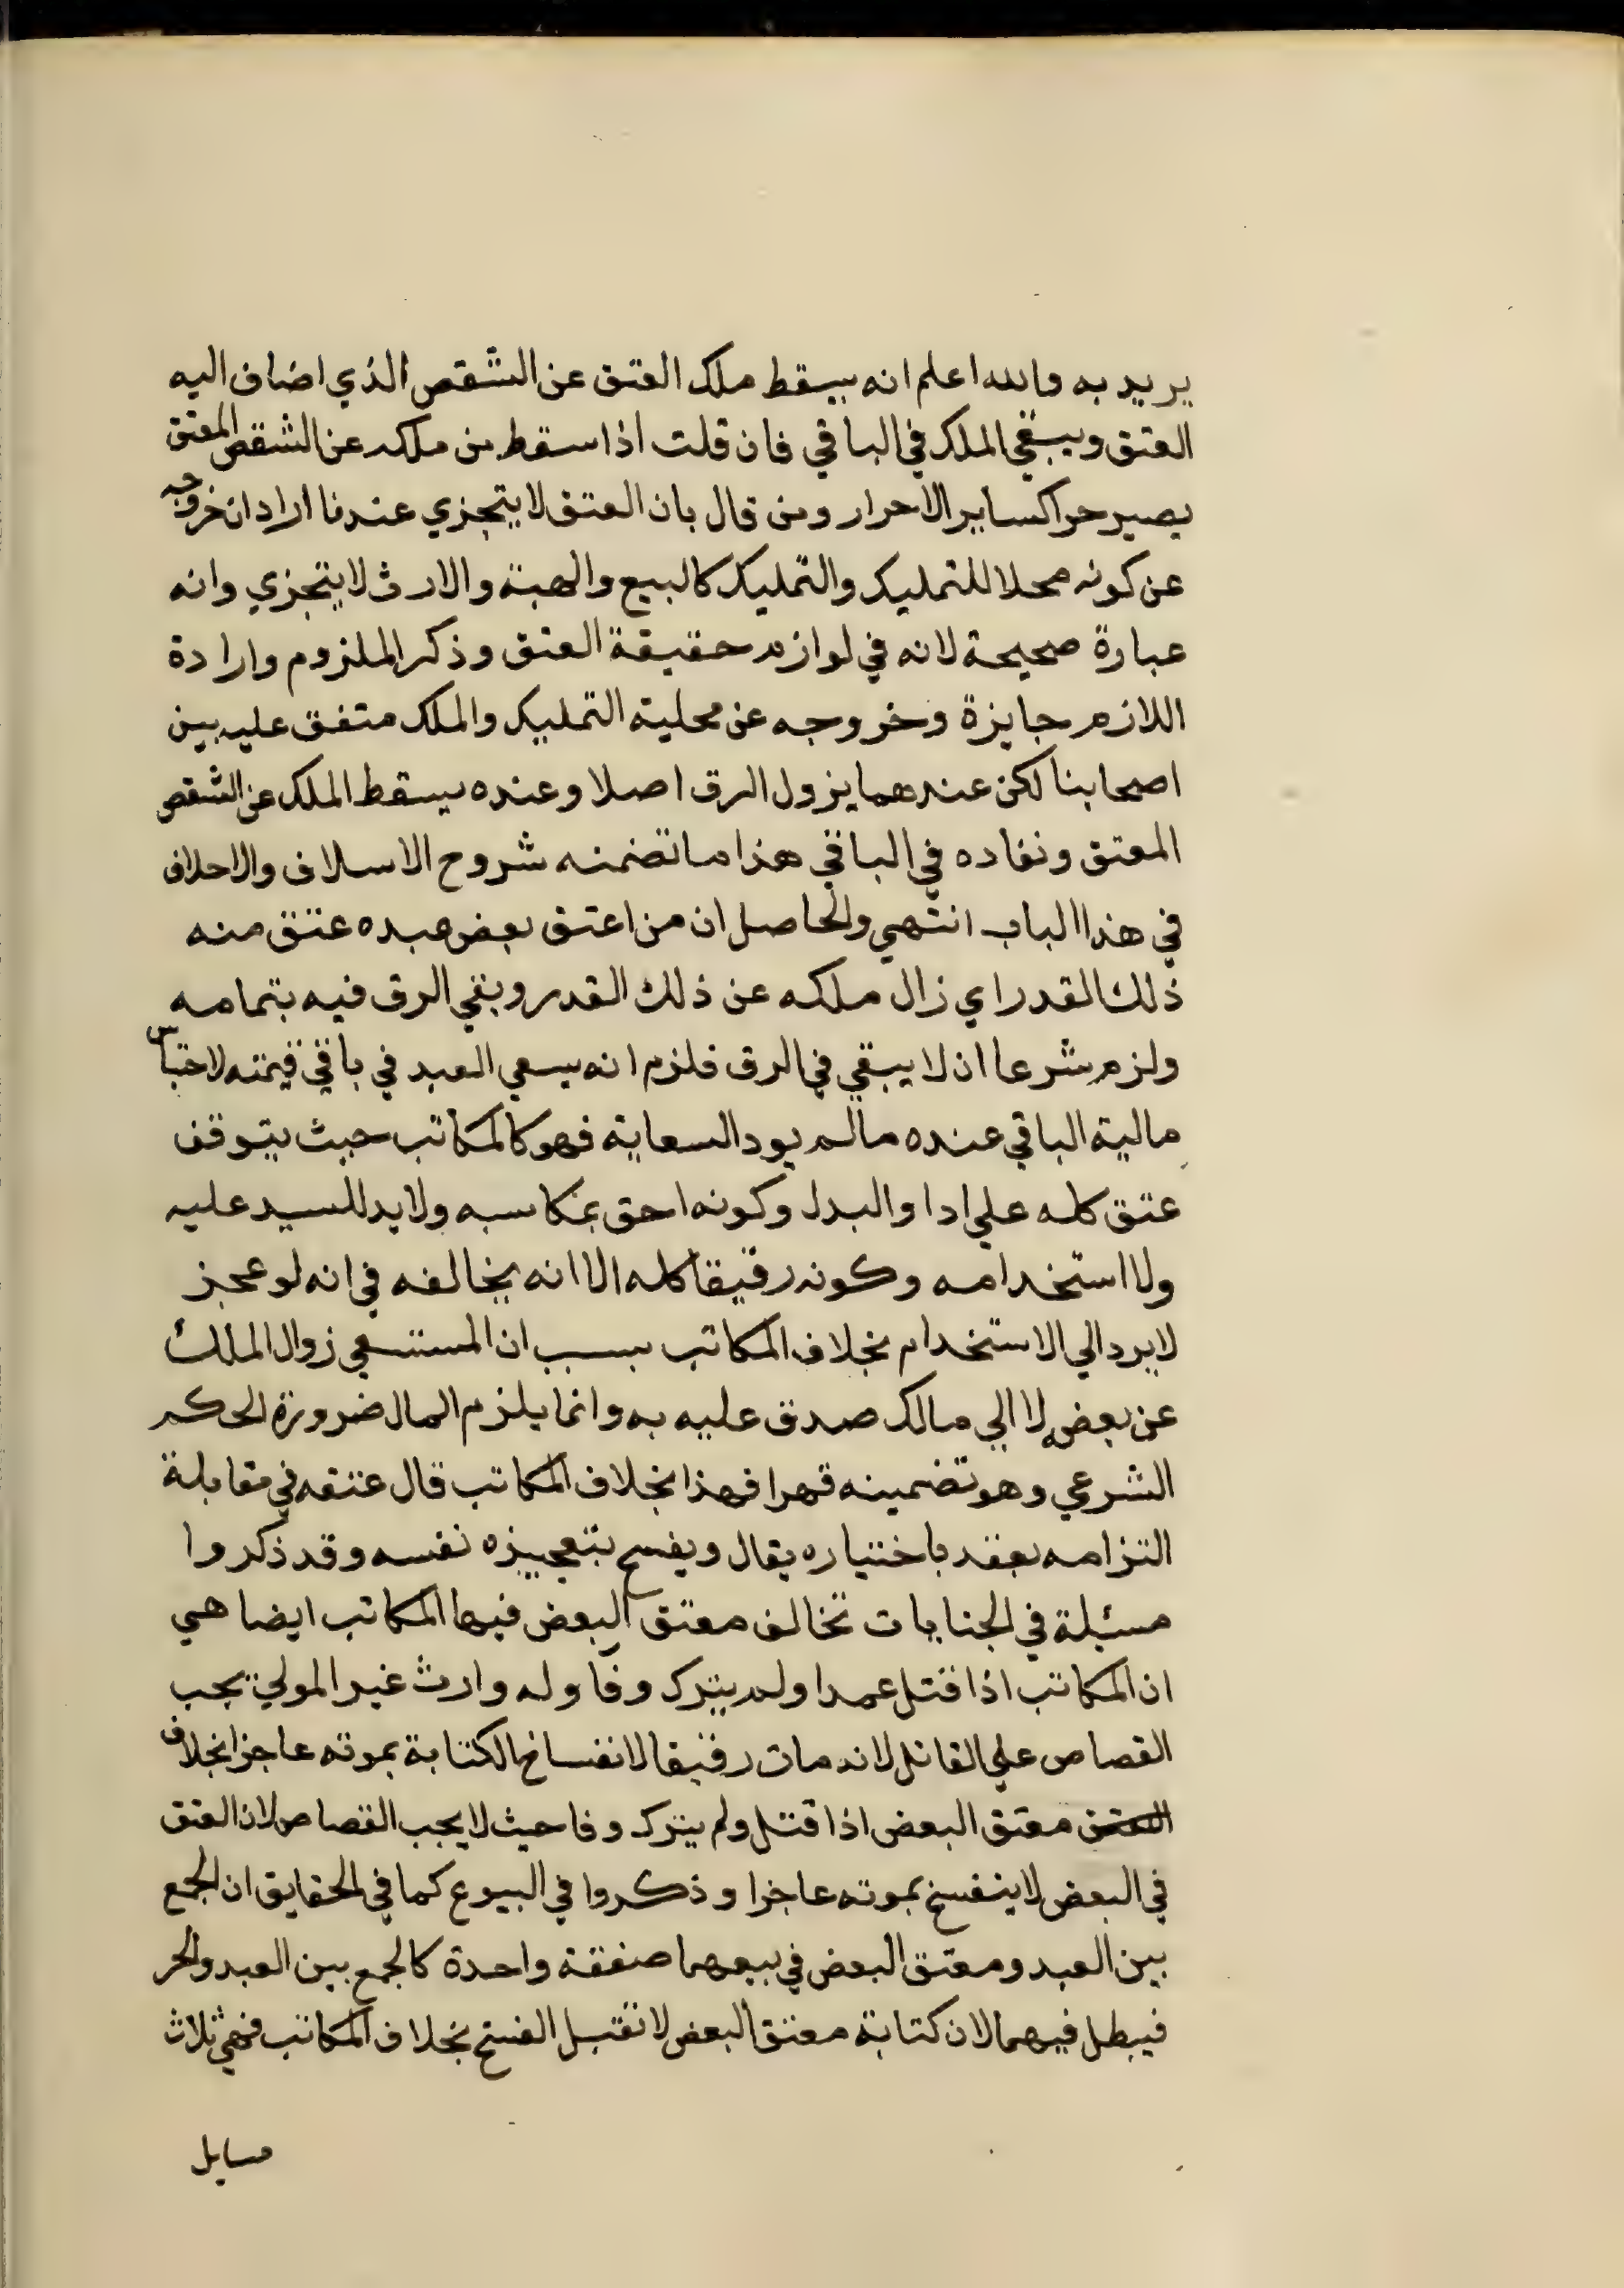 يريد به والله اعلم انه يسقط ملك العتق عن الشقص الذي اضاف اليه
العتق ويبقي الملك في الباقي فان قلت اذا سقط من ملكه عن الشقص المعتق
يصير حرا كساير الاحرار ومن قال بان العتق لا يتجزي عندنا اراد ان خروجه
عن كونه محلا للتمليك والتمليك كالبيع والهبة والارث لا يتجزي وانه
عبارة صحيحة لانه في لوازم حقيقة العتق وذكر الملزوم وارادة
اللازم جايزة وخروجه عن محلية التمليك والملك متفق عليه بين
اصحابنا لكن عندهما يزول الرق اصلا وعنده يسقط الملك عن الشقص
المعتق ونفاده في الباقي هذا ما تضمنه شروح الاسلاف والاحلاف
في هذا الباب انتهي والحاصل ان من اعتق بعض عبده عتق منه
ذلك القدر اي زال ملكه عن ذلك القدر وبقي الرق فيه بتمامه
ولزم شرعا ان لا يبقي في الرق فلزم انه يسعي العبد في باقي قيمته لاحتباس
مالية الباقي عنده مالم يود السعاية فهو كالمكاتب حيث يتوقف
عتق كله علي اداو البدل وكونه احق بمكاسبه ولا يد للسيد عليه
ولا استخدامه وكونه رقيقا كله الا انه يخالفه في انه لو عجز
لا يرد الي الاستخدام بخلاف المكاتب بسبب ان المستسعي زوال الملك
عن بعضه لا الي مالك صدق عليه به وانما يلزم المال ضرورة الحكم
الشرعي وهو تضمينه قهرا فهذا بخلاف المكاتب قال عتقه في مقابلة
التزامه بعقد باختياره يقال ويفسخ بتعجيزه نفسه وقد ذكروا
مسئلة في الجنايات تخالف معتق البعض فيها المكاتب ايضا هي
ان المكاتب اذا قتل عمدا ولم يترك وفا وله وارث غير المولي يجب
القصاص علي القاتل لانه مات رقيقا لانفساخ الكتابة بموته عاجزا بخلاف
معتق البعض اذا قتل ولم يترك وفا حيث لا يجب القصاص لان العتق
في البعض لا ينفسخ بموته عاجزا وذكروا في البيوع كما في الحقايق ان الجمع
بين العبد ومعتق البعض في بيعهما صفقة واحدة كالجمع بين العبد والحر
فيبطل فيهما لان كتابة معتق البعض لا تقبل الفسخ بخلاف المكاتب فهي ثلاث
مسايل